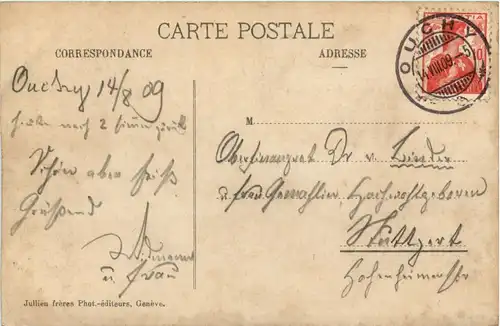 CARTE POSTALE
CORRESPONDANCE
ADRESSE
OUCHY
14.VIII.09.-5
Ouchy 14/8 09
nach 2
Schön aber heiß
Grüßend
u Frau
M
Oberfinanzrat Dr v.
u Frau Gemahlin Hochwohlgeboren
Stuttgart
Hohenheimerstr
Jullien frères Phot.-éditeurs, Genève.